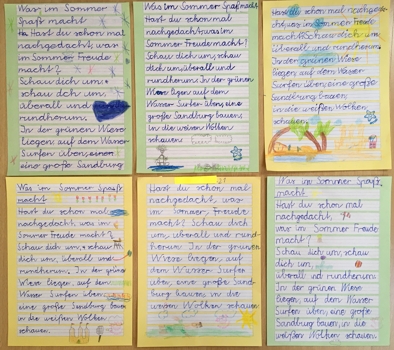 Was im Sommer
Spaß macht
Hast du schon mal
nachgedacht, was
im Sommer Freude
macht?
Schau dich um,
schau dich um,
überall und
rundherum.
In der grünen Wiese
liegen, auf dem Wasser
Surfen üben, einer
eine große Sandburg
Was im Sommer Spaß macht
Hast du schon mal
nachgedacht, was im
Sommer Freude macht?
Schau dich um, schau
dich um, überall und
rundherum. In der grünen
Wiese liegen auf dem
Wasser Surfen üben, eine
große Sandburg bauen,
in die weißen Wolken
schauen.
Hast du schon mal nachgedacht
was im Sommer Freude
macht? Schau dich um
überall und rundherum.
In der grünen Wiese
liegen auf dem Wasser
Surfen üben eine große
Sandburg bauen
in die weißen Wolken
schauen.
Was im Sommer Spaß
macht
Hast du schon mal
nachgedacht, was im
Sommer Freude macht?
Schau dich um, schau
dich um, überall und
rundherum. In der grünen
Wiese liegen, auf dem
Wasser Surfen üben,
eine große Sandburg bauen,
in die weißen Wolken
schauen.
Hast du schon mal
nachgedacht, was
im Sommer, Freude
macht? Schau dich
um, überall und rund-
herum. In der grünen
Wiese liegen, auf
dem Wasser Surfen
üben, eine große Sand-
burg bauen in die
weißen Wolken schauen
Was im Sommer Spaß
macht
Hast du schon mal
nachgedacht,
was im Sommer Freude
macht?
Schau dich um, schau
dich um,
überall und rundherum.
In der grünen Wiese
liegen, auf dem Wasser
Surfen üben, eine große
Sandburg bauen, in die
weißen Wolken schauen.